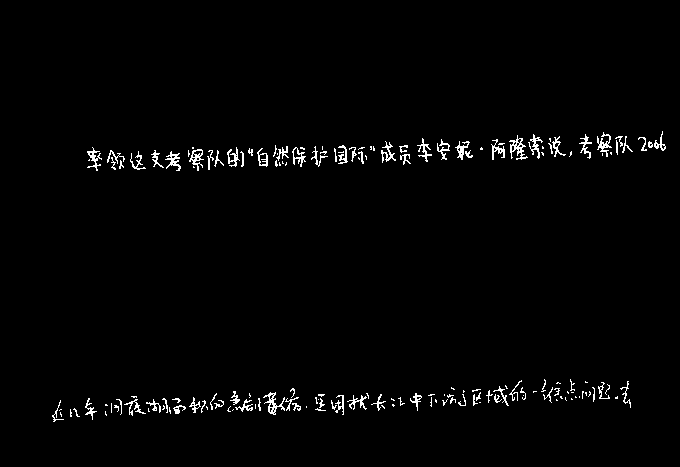 率领这支考察队的“自然保护国际”成员李安妮·阿隆索说,考察队2006
近几年洞庭湖面积的急剧萎缩,是困扰长江中下游区域的一焦点问题。去